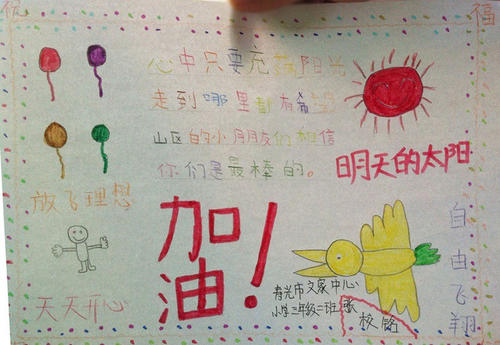 祝
福
心中只要充满阳光
走到哪里都有希望
山区的小朋友们相信
你们是最棒的。
明天的太阳
放飞理想
加油！
自由飞翔
天天开心
寿光市文家中心
小学三年级二班
校铭